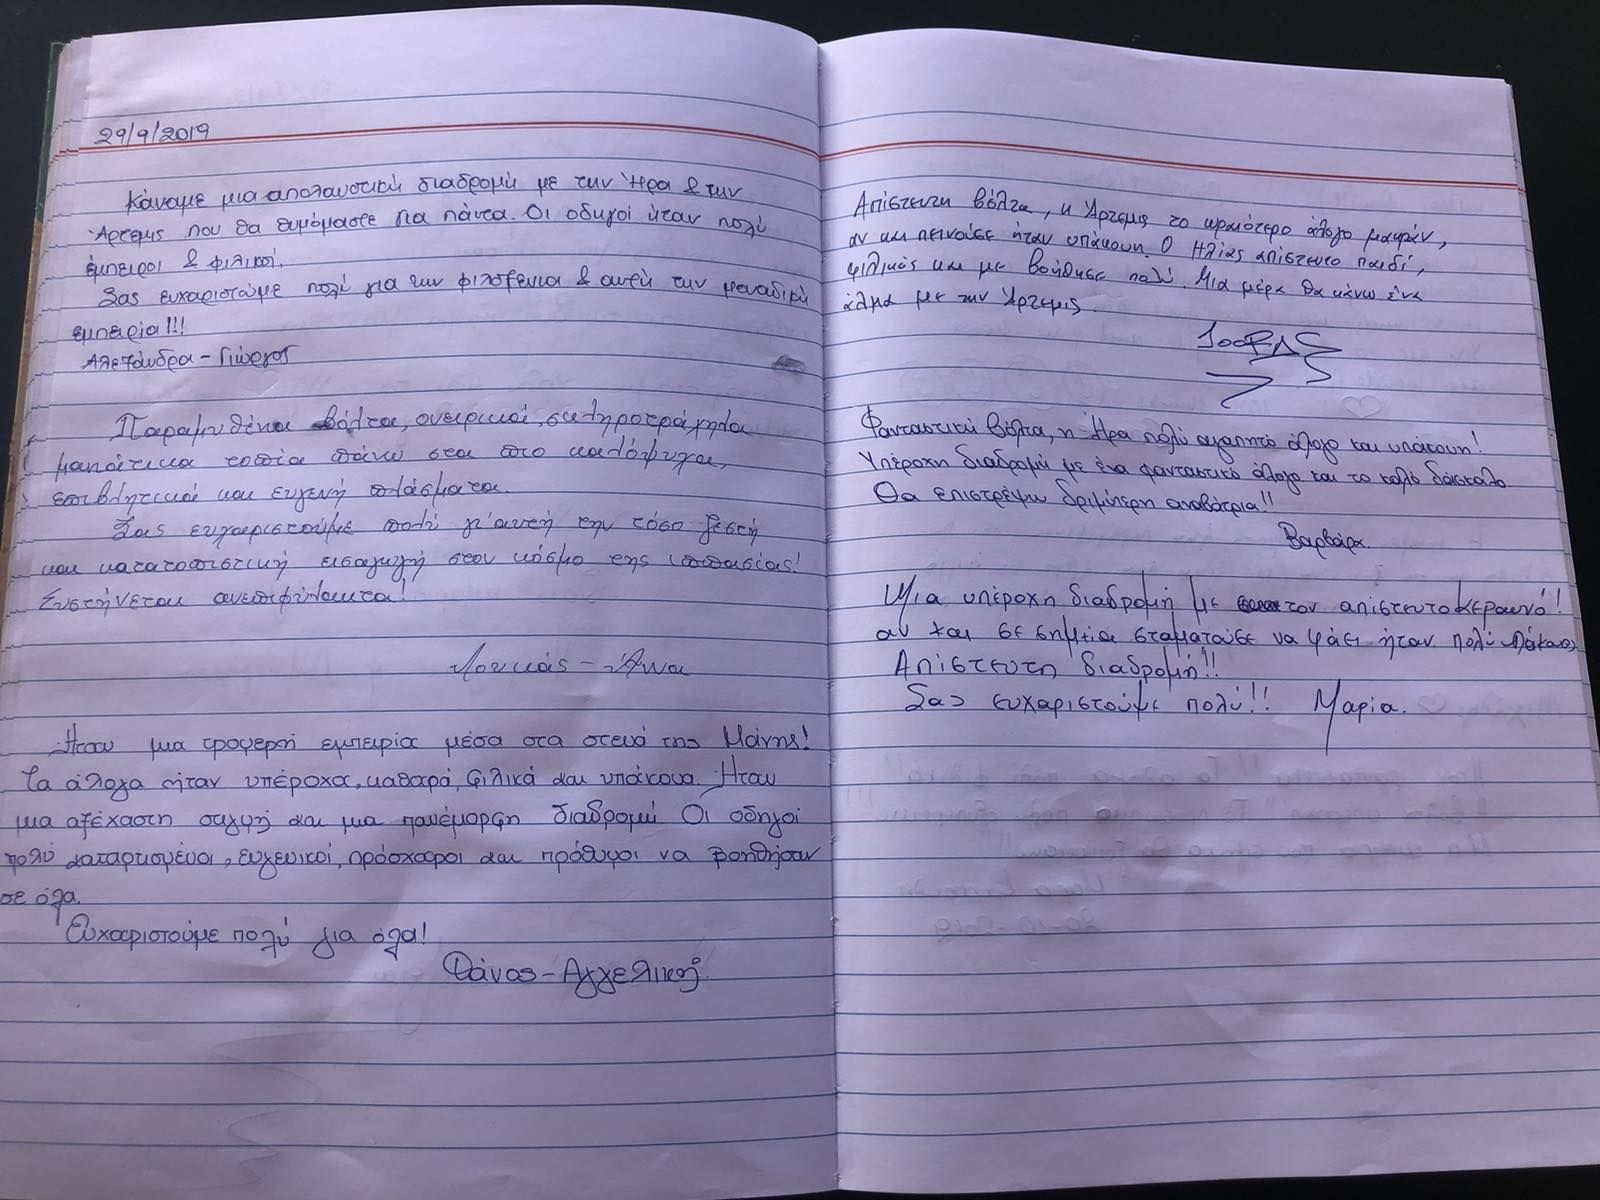 29/9/2019
Κάναμε μια απολαυστική διαδρομή με την Ήρα & την
Άρτεμις που θα θυμόμαστε για πάντα. Οι οδηγοί ήταν πολύ
έμπειροι & φιλικοί.
Σας ευχαριστούμε πολύ για την φιλοξενία & αυτή την μοναδική
εμπειρία!!!
Αλεξάνδρα - Γιώργος
Παραμυθένια βόλτα, ονειρικά, σκληροτράχηλα
μανιάτικα τοπία πάνω στα πιο καλόψυχα,
επιβλητικά και ευγενή πλάσματα.
Σας ευχαριστούμε πολύ γι' αυτή την τόσο ζεστή
και κατατοπιστική εισαγωγή στον κόσμο της ιππασίας!
Συστήνεται ανεπιφύλακτα!
Λουκάς - Άννα
Ήταν μια τρομερή εμπειρία μέσα στα στενά της Μάνης!
Τα άλογα ήταν υπέροχα, καθαρά, φιλικά και υπάκουα. Ήταν
μια αξέχαστη στιγμή και μια πανέμορφη διαδρομή. Οι οδηγοί
πολύ καταρτισμένοι, ευγενικοί, πρόσχαροι και πρόθυμοι να βοηθήσουν
σε όλα.
Ευχαριστούμε πολύ για όλα!
Θάνος - Αγγελική
Απίστευτη βόλτα, η Άρτεμις το ωραιότερο άλογο μακράν,
αν και πεινούσε ήταν υπάκουη. Ο Ηλίας απίστευτο παιδί,
φιλικός και με βοήθησε πολύ. Μια μέρα θα κάνω ένα
άλμα με την Άρτεμις.
Φανταστική βόλτα, η Ήρα πολύ αγαπητό άλογο και υπάκουη!
Υπέροχη διαδρομή με ένα φανταστικό άλογο και το καλό δάσκαλο
Θα επιστρέψω δριμύτερη αναβάτρια!!
Βαρβάρα.
Μια υπέροχη διαδρομή με τον απίστευτο Κεραυνό!
αν και σε σημεία σταματούσε να φάει ήταν πολύ
Απίστευτη διαδρομή!!
Σας ευχαριστούμε πολύ!! Μαρία.